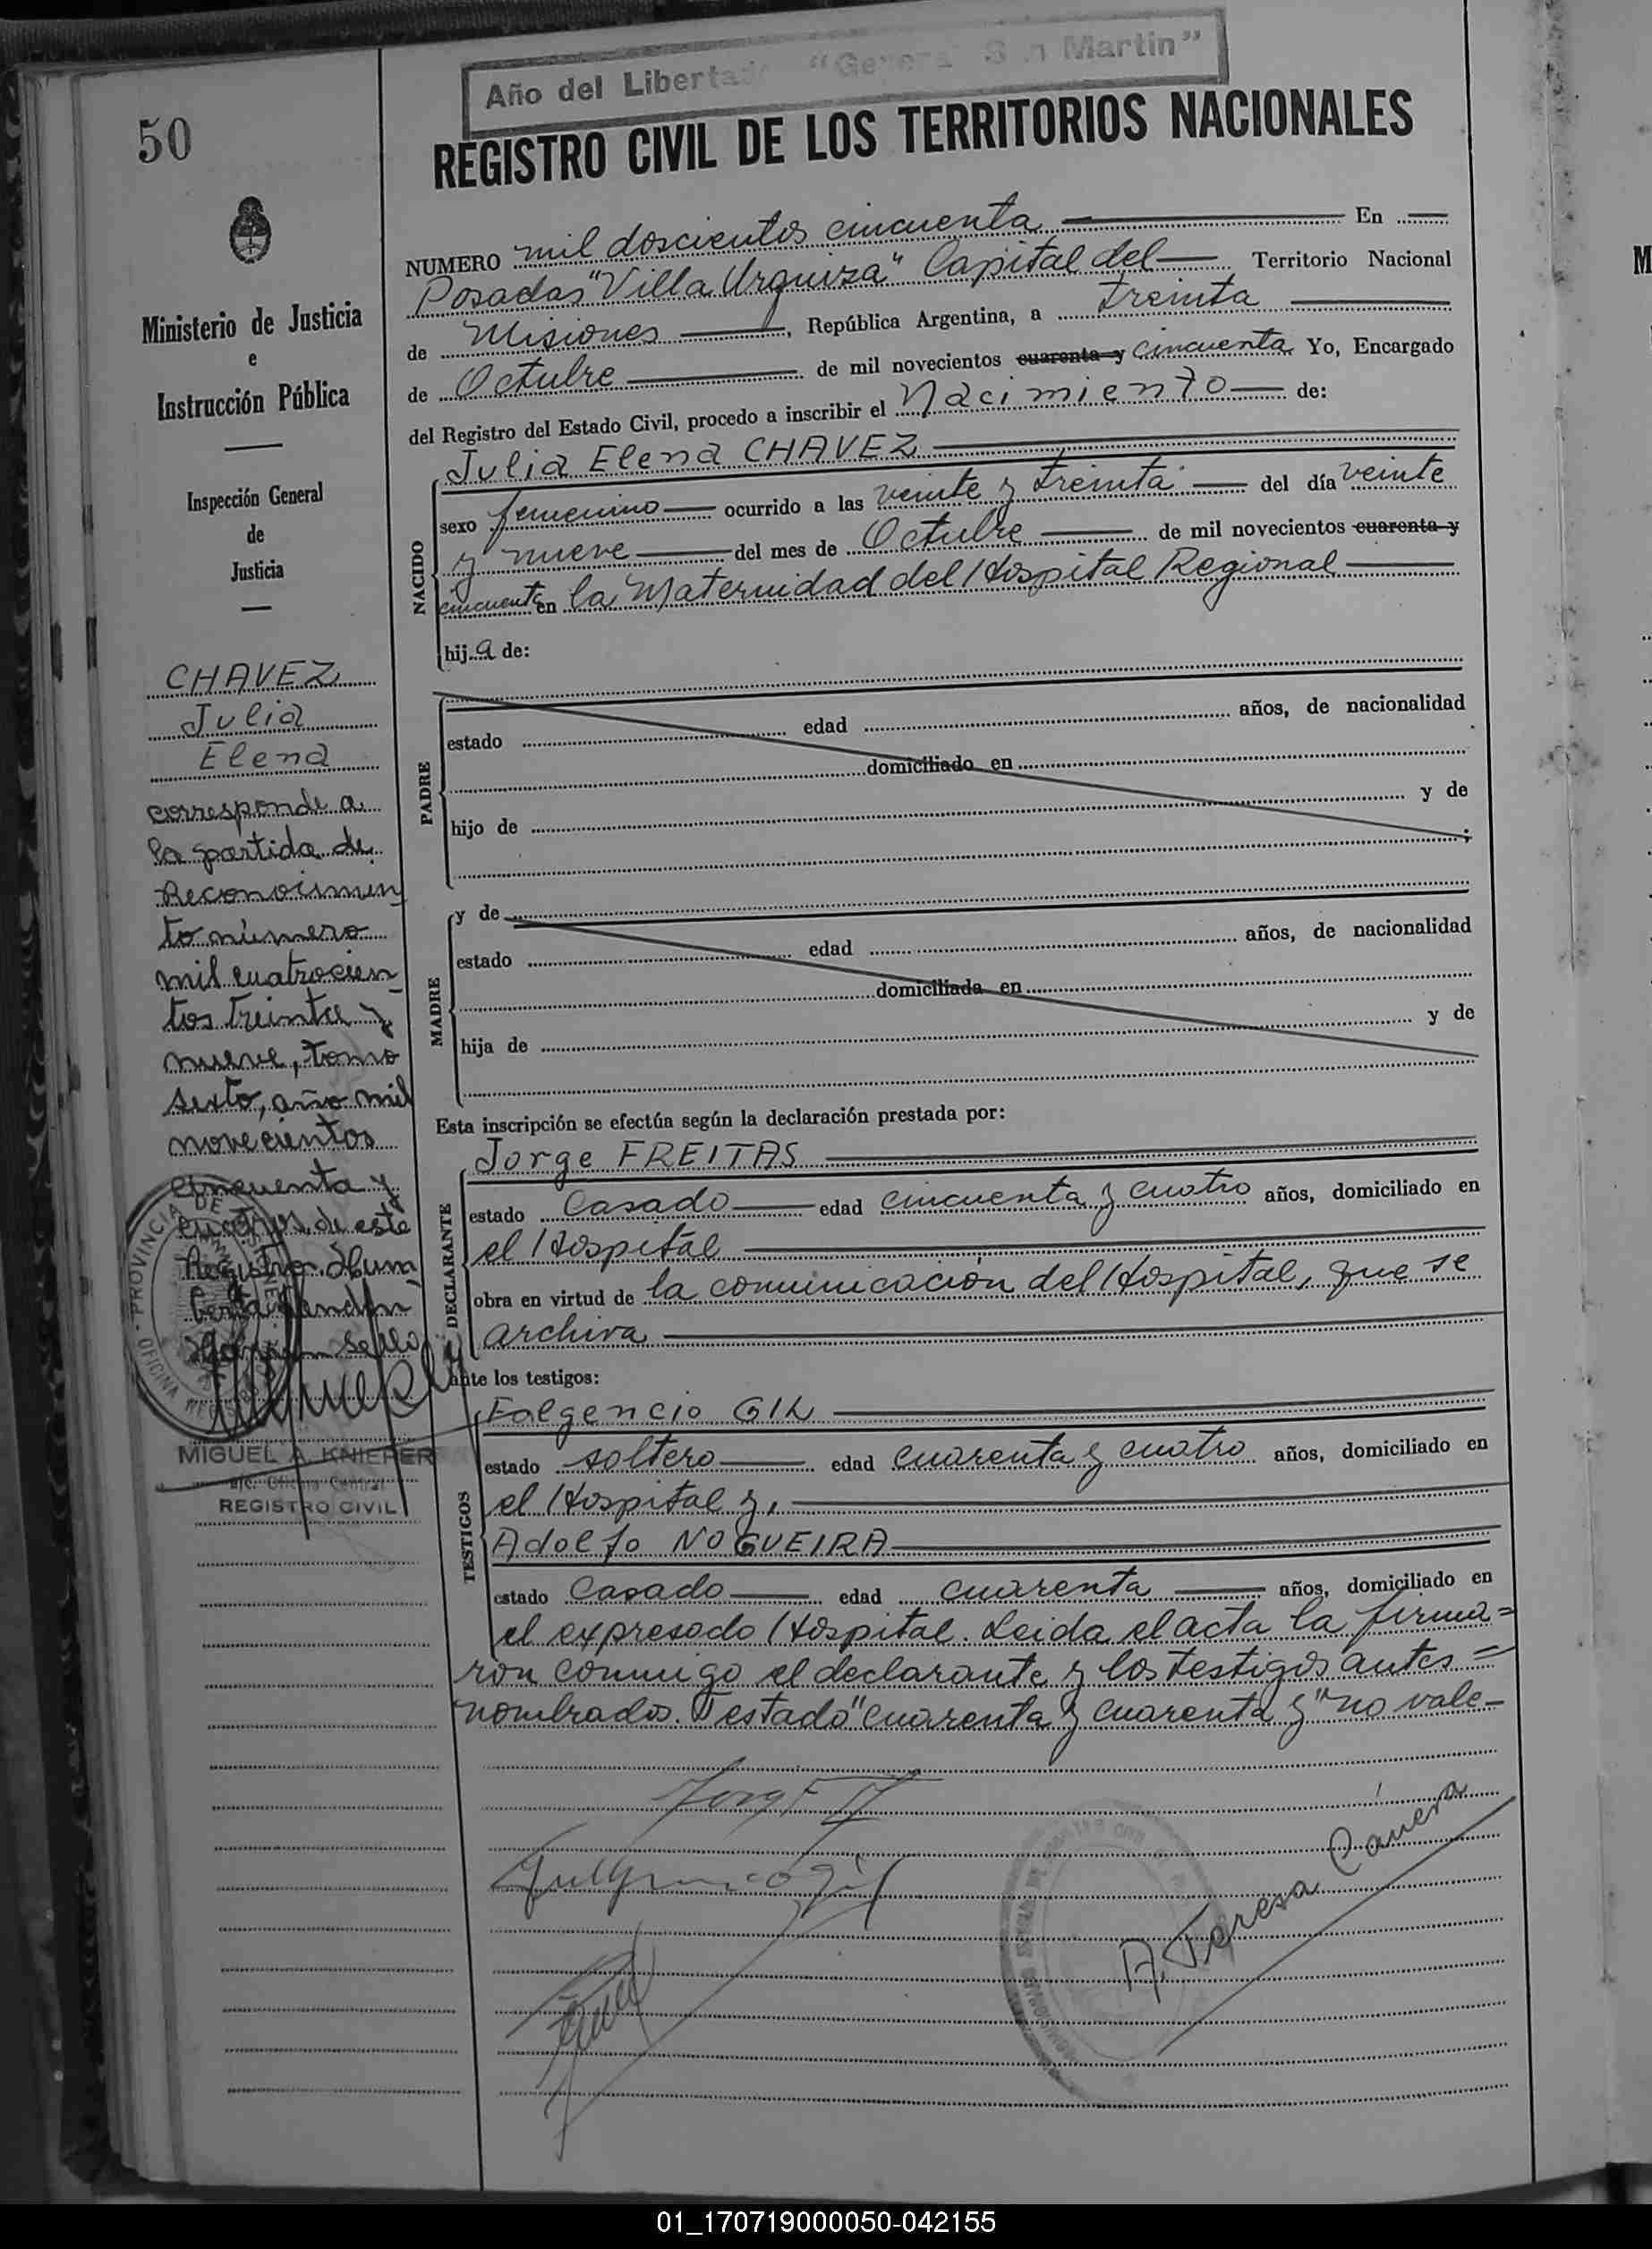 Año del Libertador "General San Martin"
50
REGISTRO CIVIL DE LOS TERRITORIOS NACIONALES
Ministerio de Justicia
e
Instrucción Pública
Inspección General
de
Justicia
CHAVEZ
Julia
Elena
corresponde a
la partida de
Reconocimien
to número
mil cuatrocien
tos treinta y
nueve, tomo
sexto, año mil
novecientos
cincuenta y
cuatro de este
Registro
sello
PROVINCIA DE
OFICINA
MIGUEL A. KNIEPER
a/c. Oficina Central
REGISTRO CIVIL
NUMERO mil doscientos cincuenta En
Posadas "Villa Urquiza" Capital del Territorio Nacional
de Misiones, República Argentina, a treinta
de Octubre de mil novecientos cuarenta y cincuenta Yo, Encargado
del Registro del Estado Civil, procedo a inscribir el Nacimiento de:
NACIDO
Julia Elena CHAVEZ
sexo femenino ocurrido a las veinte y treinta del día veinte
y nueve del mes de Octubre de mil novecientos cuarenta y
cincuenta en la Maternidad del Hospital Regional
hija de:
PADRE
estado edad años, de nacionalidad
domiciliado en
hijo de y de
;
MADRE
y de
estado edad años, de nacionalidad
domiciliada en
hija de y de
Esta inscripción se efectúa según la declaración prestada por:
DECLARANTE
Jorge FREITAS
estado Casado edad cincuenta y cuatro años, domiciliado en
el Hospital
obra en virtud de la comunicación del Hospital, que se
archiva
ante los testigos:
TESTIGOS
Folgencio GIL
estado soltero edad cuarenta y cuatro años, domiciliado en
el Hospital y,
Adolfo NOGUEIRA
estado Casado edad cuarenta años, domiciliado en
el expresado Hospital. Leida el acta la firma=
ron conmigo el declarante y los testigos antes=
nombrados. Testado "cuarenta y cuarenta y" no vale-
A. Teresa Canera
01_170719000050-042155